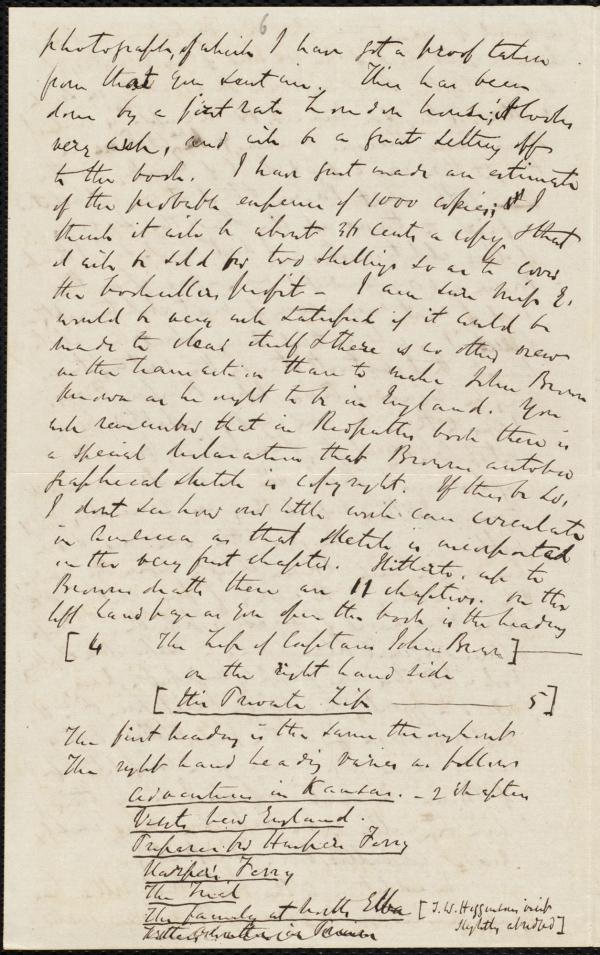 6
photograph, of which I have got a proof taken
from that you sent me. This has been
done by a first rate London house; it looks
very well, and will be a great setting off
to the book. I have just made an estimate
of the probable expense of 1000 copies; & I
think it will be about 36 cents a copy & that
it will be sold for two shillings so as to cover
the booksellers profit - I am sure Miss E.
would be very well satisfied if it could be
made to clear itself & there is no other view
in the transaction than to make John Brown
known as he ought to be in England. You
will remember that in Redpaths book there is
a special declaration that Browns autobio
graphical sketch is copyright. If this be so,
I dont see how our little work can circulate
in America as that sketch is incorporated
in the very first chapter. Hitherto, up to
Browns death there are 11 chapters. On the
left hand page as you open the book is the heading
[ 4 The Life of Captain John Brown ]
on the right hand side
[ His Private Life 5 ]
The first heading is the same throughout
The right hand heading varies as follows
Adventures in Kansas. - 2 chapters
Visits New England.
Prepares for Harpers Ferry
Harpers Ferry
The Trial
The family at North Elba [ T. W. Higginsons visit
slightly abridged ]
Letters written in Prison